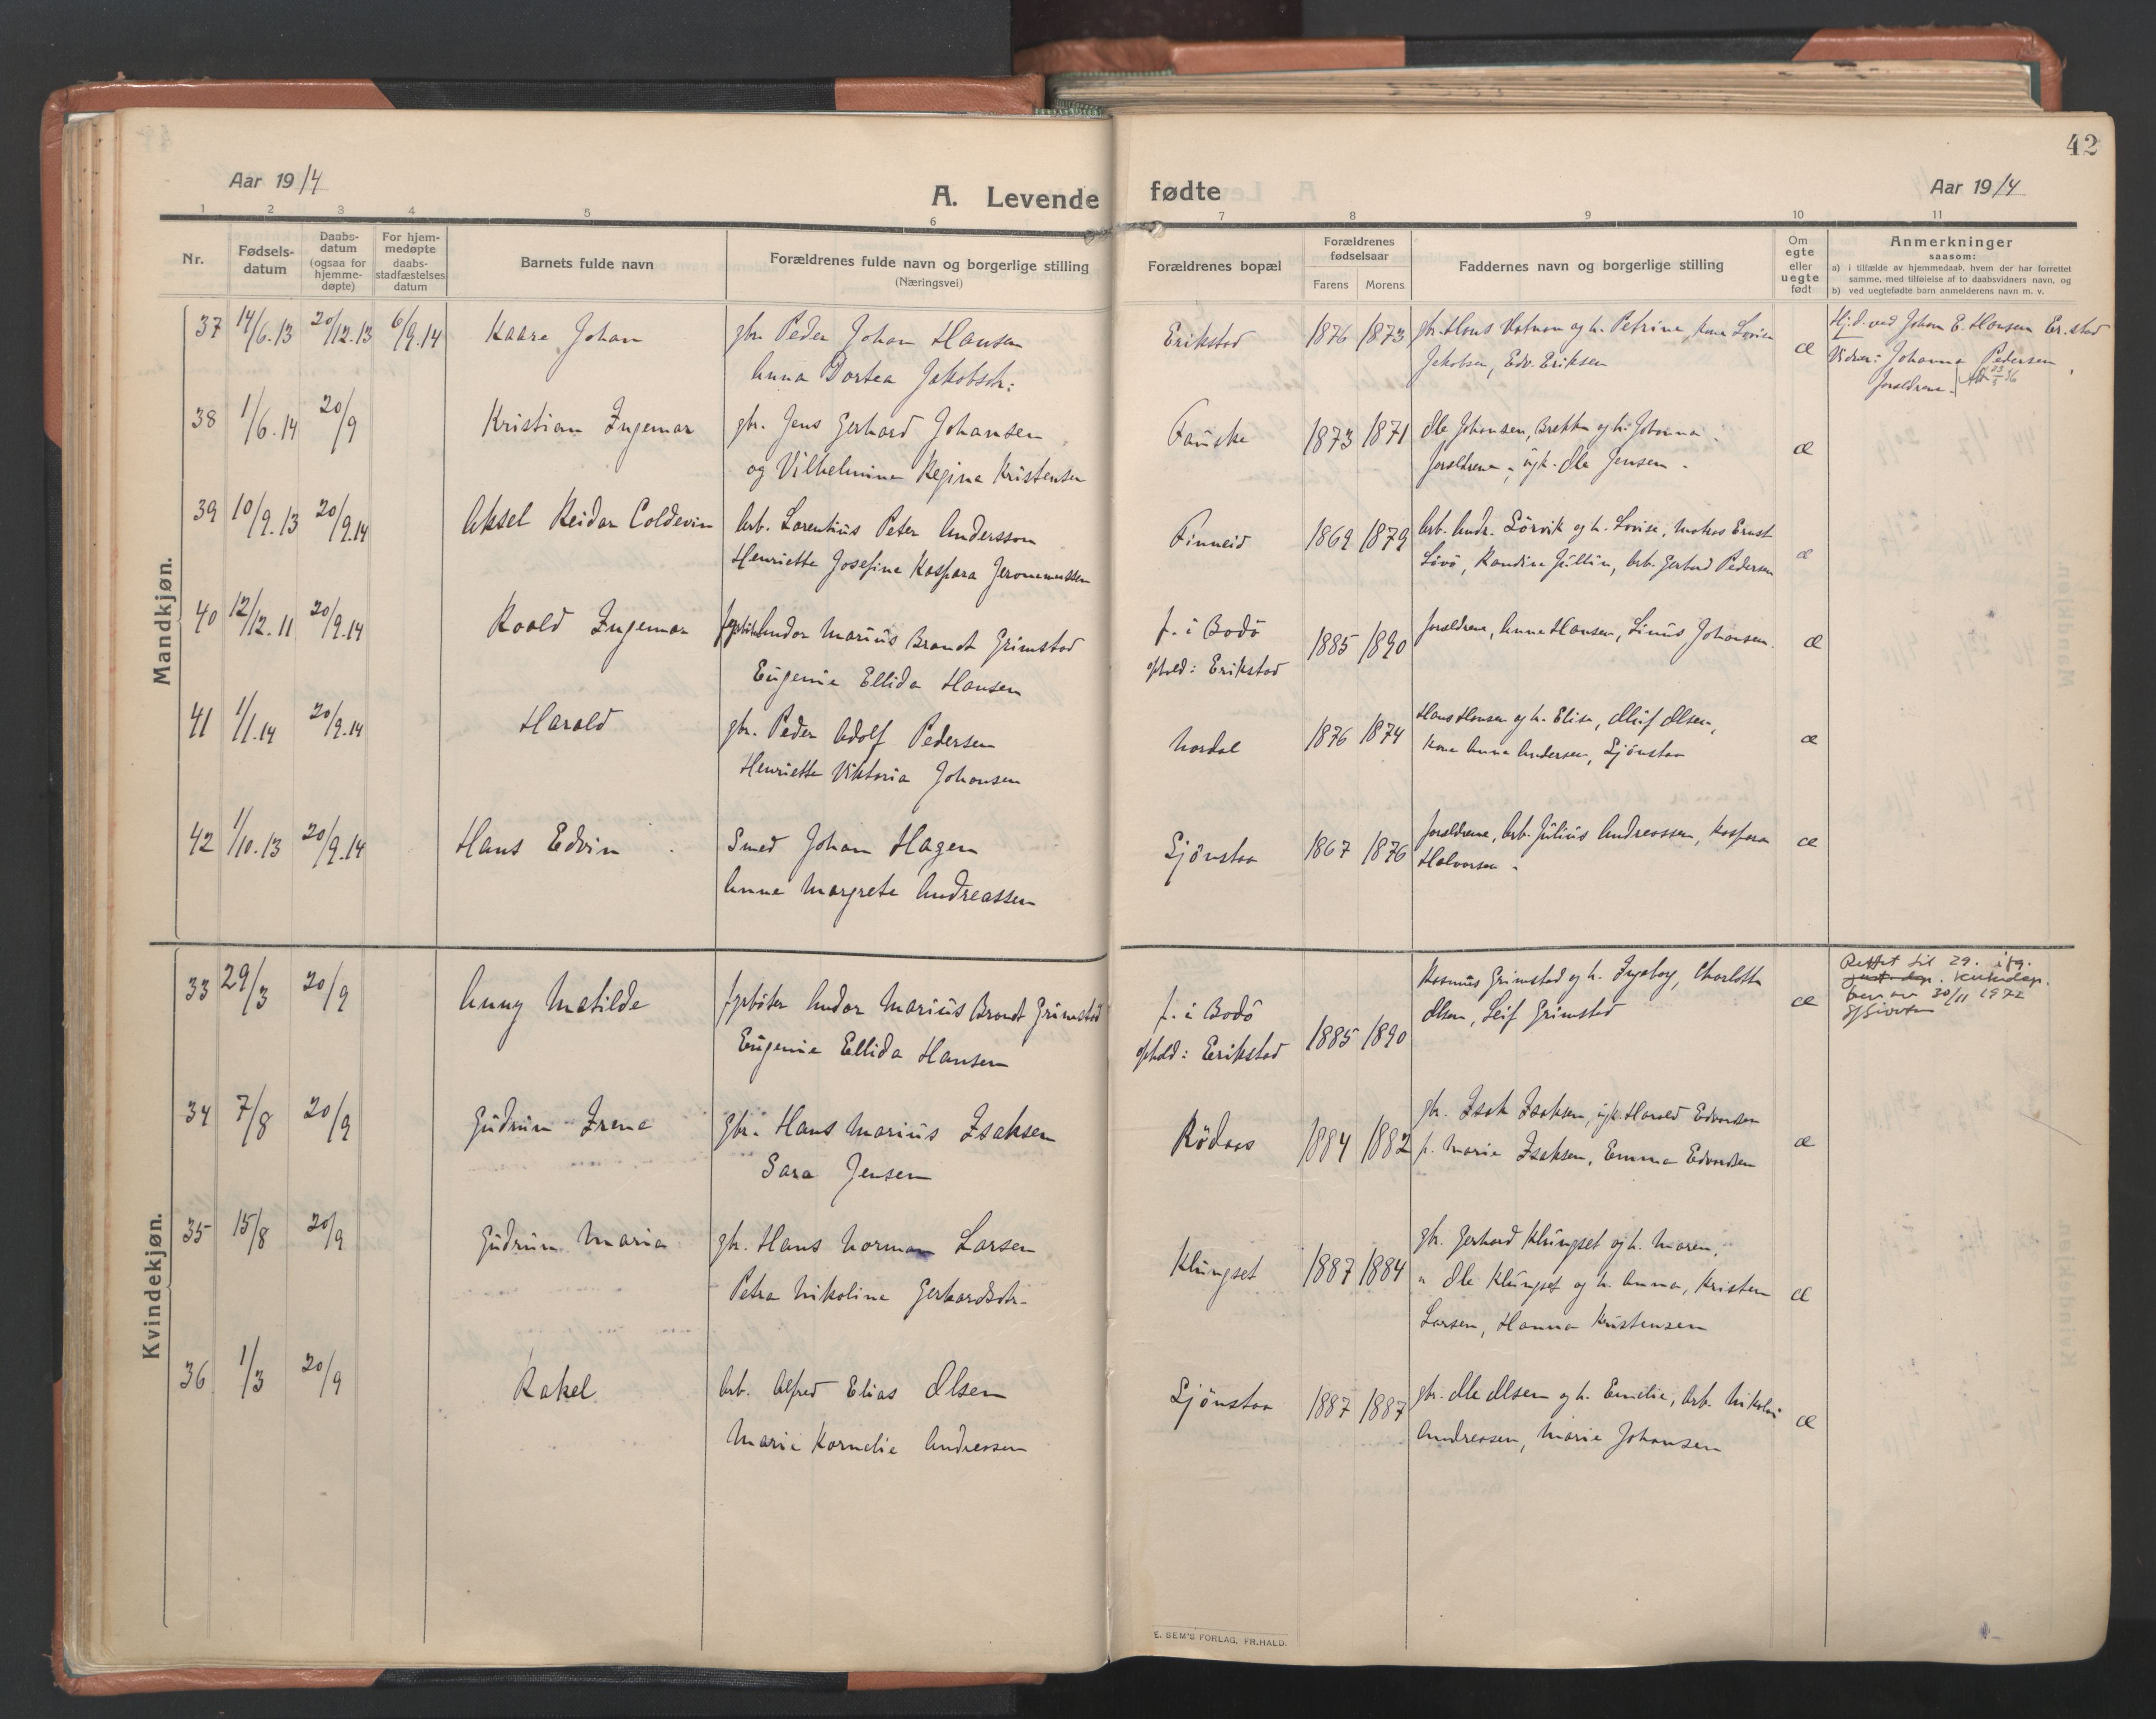 42
Aar 1914
A. Levende fødte
Aar 1914
1 2 3 4 5 6 7 8 9 10 11
Nr.
Fødsels-
datum
Daabs-
datum
(ogsaa for
hjemme-
døpte)
For hjem-
medøpte
daabs-
stadfæstelses
datum
Barnets fulde navn
Forældrenes fulde navn og borgerlige stilling
(Næringsvei)
Forældrenes bopæl
Forældrenes
fødselsaar
Farens Morens
Faddernes navn og borgerlige stilling
Om
egte
eller
uegte
født
Anmerkninger
saasom:
a) i tilfælde av hjemmedaab, hvem der har forrettet
samme, med tilføielse af to daabsvidners navn, og
b) ved uegtefødte barn anmelderens navn m. v.
Mandkjøn.
37 14/6.13 20/12.13 6/9.14 Kaare Johan gbr. Peder Johan Hansen Erikstad 1876 1873 gbr. Hans Vatnan og h. Petrine, kone Lovise æ Hj.d. ved Johan E. Hansen Er.stad
Anna Dortea Jakobsdtr: Jakobsen, Edv. Eriksen Vidner: Johanna Pedersen,
forældrene.
38 1/6.14 20/9 Kristian Ingemar gbr. Jens Gerhard Johansen Fauske 1873 1871 Ole Johansen, Brekke og h. Johanna. æ
og Vilhelmine Regine Kristensen forældrene, ugk. Ole Jensen.
39 10/9.13 20/9.14 Aksel Reidar Coldevin Arb. Lorentius Peter Andersson Finneid 1869 1879 Arb. Andr. Lörvik og h. Lovise, Ernst æ
Henriette Josefine Kaspara Jeronemussen Lövö, Randine Jullin, Arb. Gerhard Pedersen
40 12/12.11 20/9.14 Roald Ingemar fyrböter Andor Marius Brandt Grimstad f. i Bodö 1885 1890 forældrene, Anne Hansen, Linus Johansen. æ
Eugenie Ellida Hansen ophold: Erikstad
41 1/1.14 20/9.14 Harald gbr. Peder Adolf Pedersen Nordal 1876 1874 Hans Hansen og h. Elise, Oluf Olsen, æ
Henriette Viktoria Johansen Kone Anna Andersen, Sjönstaa
42 1/10.13 20/9.14 Hans Edvin Smed Johan Hagen Sjönstaa 1867 1876 forældrene, Arb. Julius Andreassen, Kaspara æ
Anne Margrete Andreassen Halvorsen
Kvindekjøn.
33 29/3 20/9 Anny Matilde fyrböter Andor Marius Brandt Grimstad f. i Bodö 1885 1890 Rasmus Grimstad og h. Ingeborg, Charlotte æ Rettet til 29. ifg.
Eugenie Ellida Hansen ophold: Erikstad Olsen, Leif Grimstad just. dep. Kirkedep.
brev av 30/11 1972
34 7/8 20/9 Gudrun Irene Gbr. Hans Marius Isaksen Rödaas 1884 1882 gbr. Isak Isaksen, ugk. Harald Edvardsen æ
Sara Jensen p. Marie Isaksen, Emma Edvardsen
35 15/8 20/9 Gudrun Marie gbr. Hans Norman Larsen Klungset 1887 1884 gbr. Gerhard Klungset og h. Maren, æ
Petra Nikoline Gerhardsdtr. " Ole Klungset og h. Anna, Kristen
Larsen, Hanna Kristensen
36 1/3 20/9 Rakel Arb. Alfred Elias Olsen Sjönstaa 1887 1887 gbr. Ole Olsen og h. Emelie, Arb. Nikolai æ
Marie Kornelie Andreasen Andreasen, Marie Johansen
E. SEM'S FORLAG, FR.HALD.